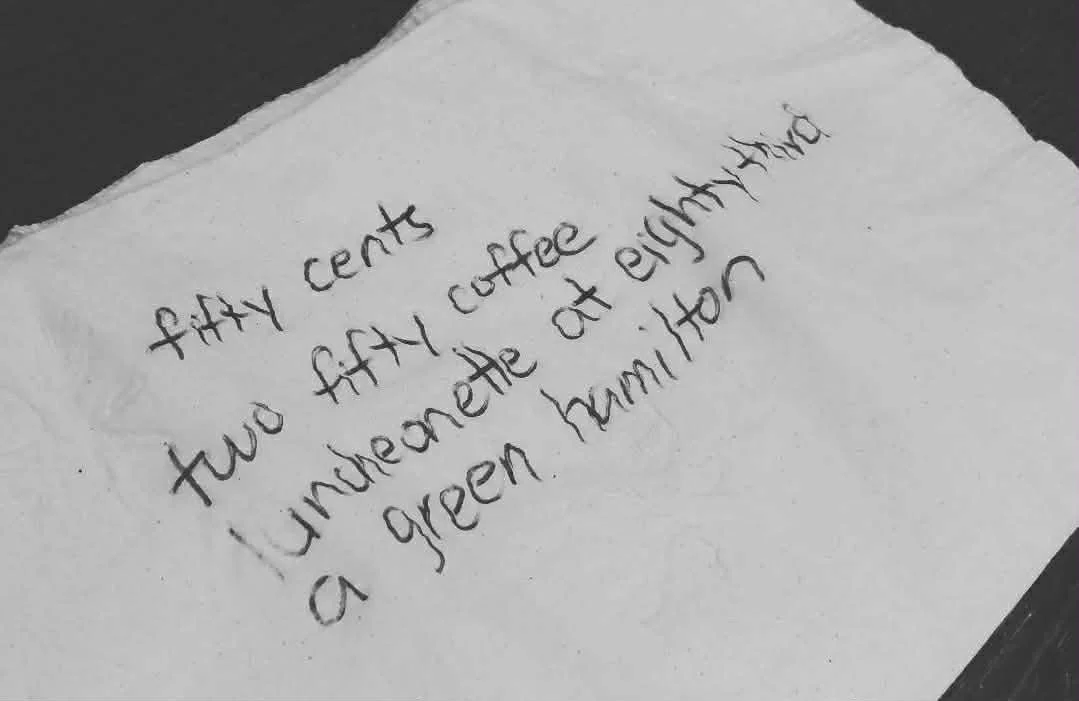 fifty cents
two fifty coffee
luncheonette at eighty third
a green hamilton